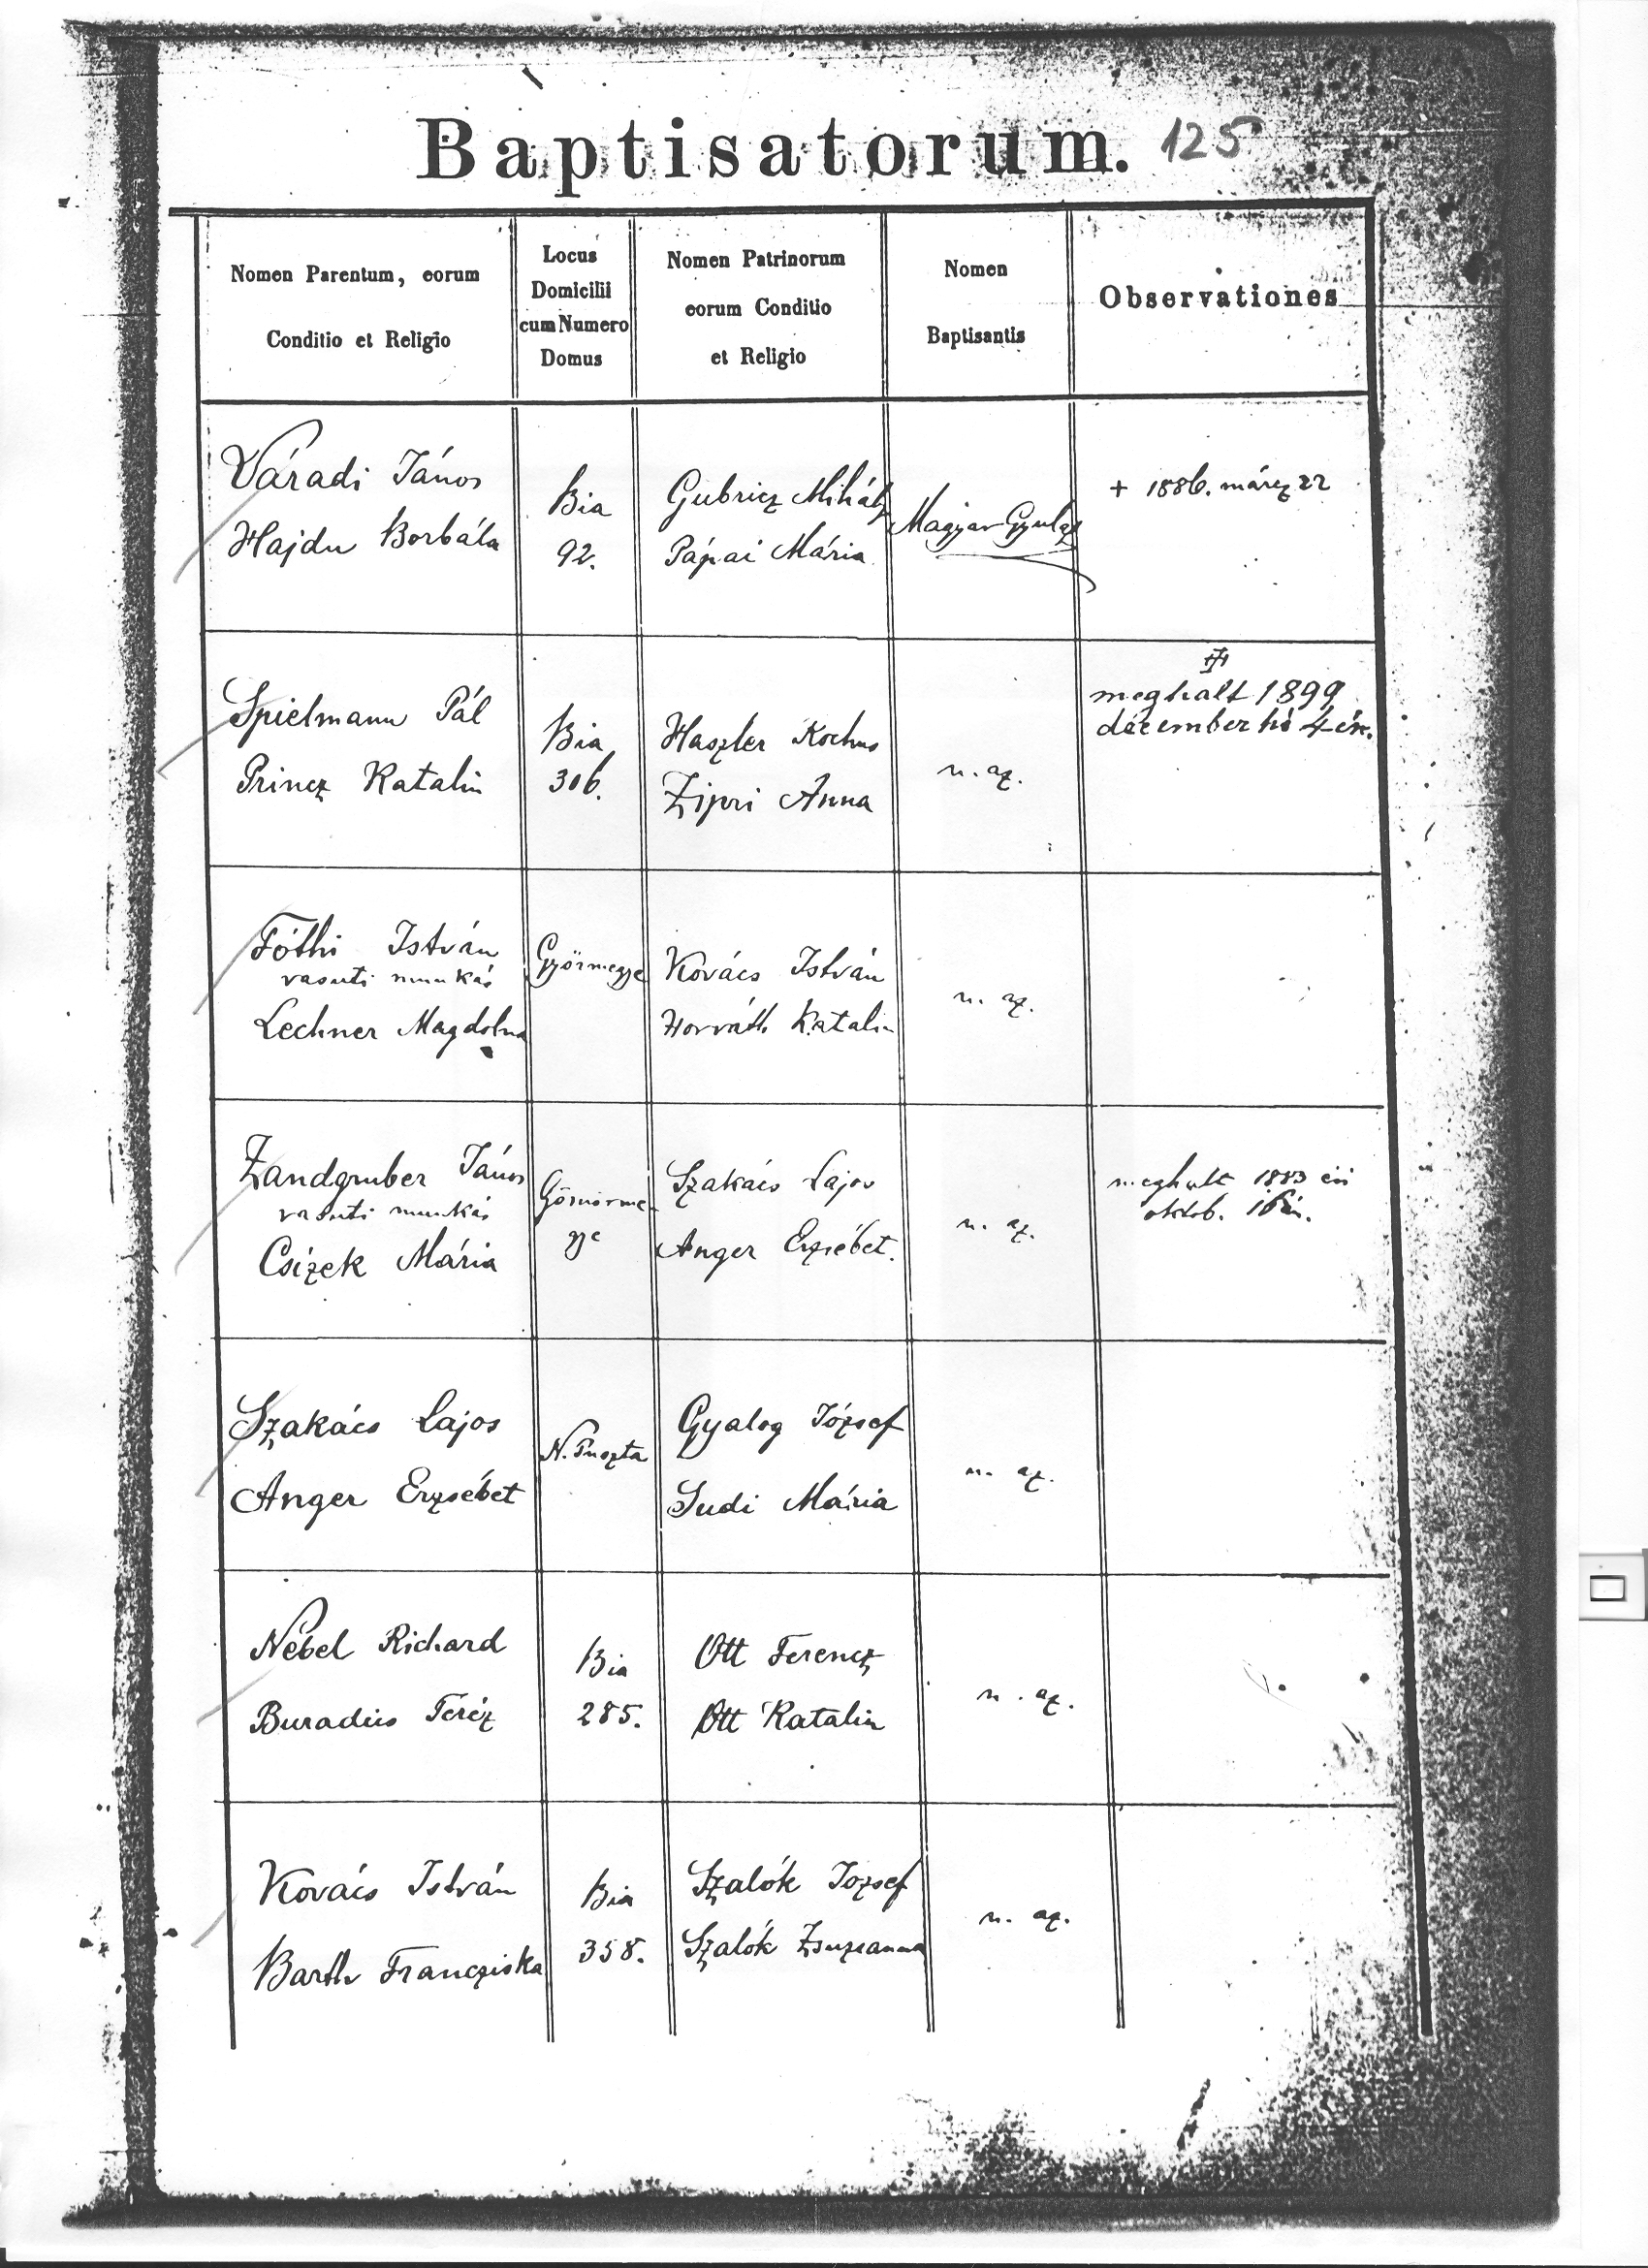 Baptisatorum. 125
Nomen Parentum, eorum
Conditio et Religio
Locus
Domicilii
cum Numero
Domus
Nomen Patrinorum
eorum Conditio
et Religio
Nomen
Baptisantis
Observationes
Váradi János
Hajdu Borbála
Bia
92.
Gubricz Mihály
Pápai Mária
Magyar Gyula
+ 1886. márcz 22
Spielmann Pál
Princz Katalin
Bia
306.
Haszler Rochus
Zipri Anna
u. az.
meghalt 1899
december hó 4én.
Fóthi István
vasuti munkás
Lechner Magdolna
Győrmegye
Kovács István
Horváth Katalin
u. az.
Zandgruber János
vasuti munkás
Csizek Mária
Gömörme-
gye
Szakács Lajos
Anger Erzsébet.
u. az.
meghalt 1883 évi
oktob. 16án.
Szakács Lajos
Anger Erzsébet
N. Puszta
Gyalog József
Sudi Mária
u. az.
Nébel Richard
Teréz
Bia
285.
Ott Ferencz
Ott Katalin
u. az.
Kovács István
Barth Francziska
Bia
358.
Szalók József
Szalók Zsuzsanna
u. az.